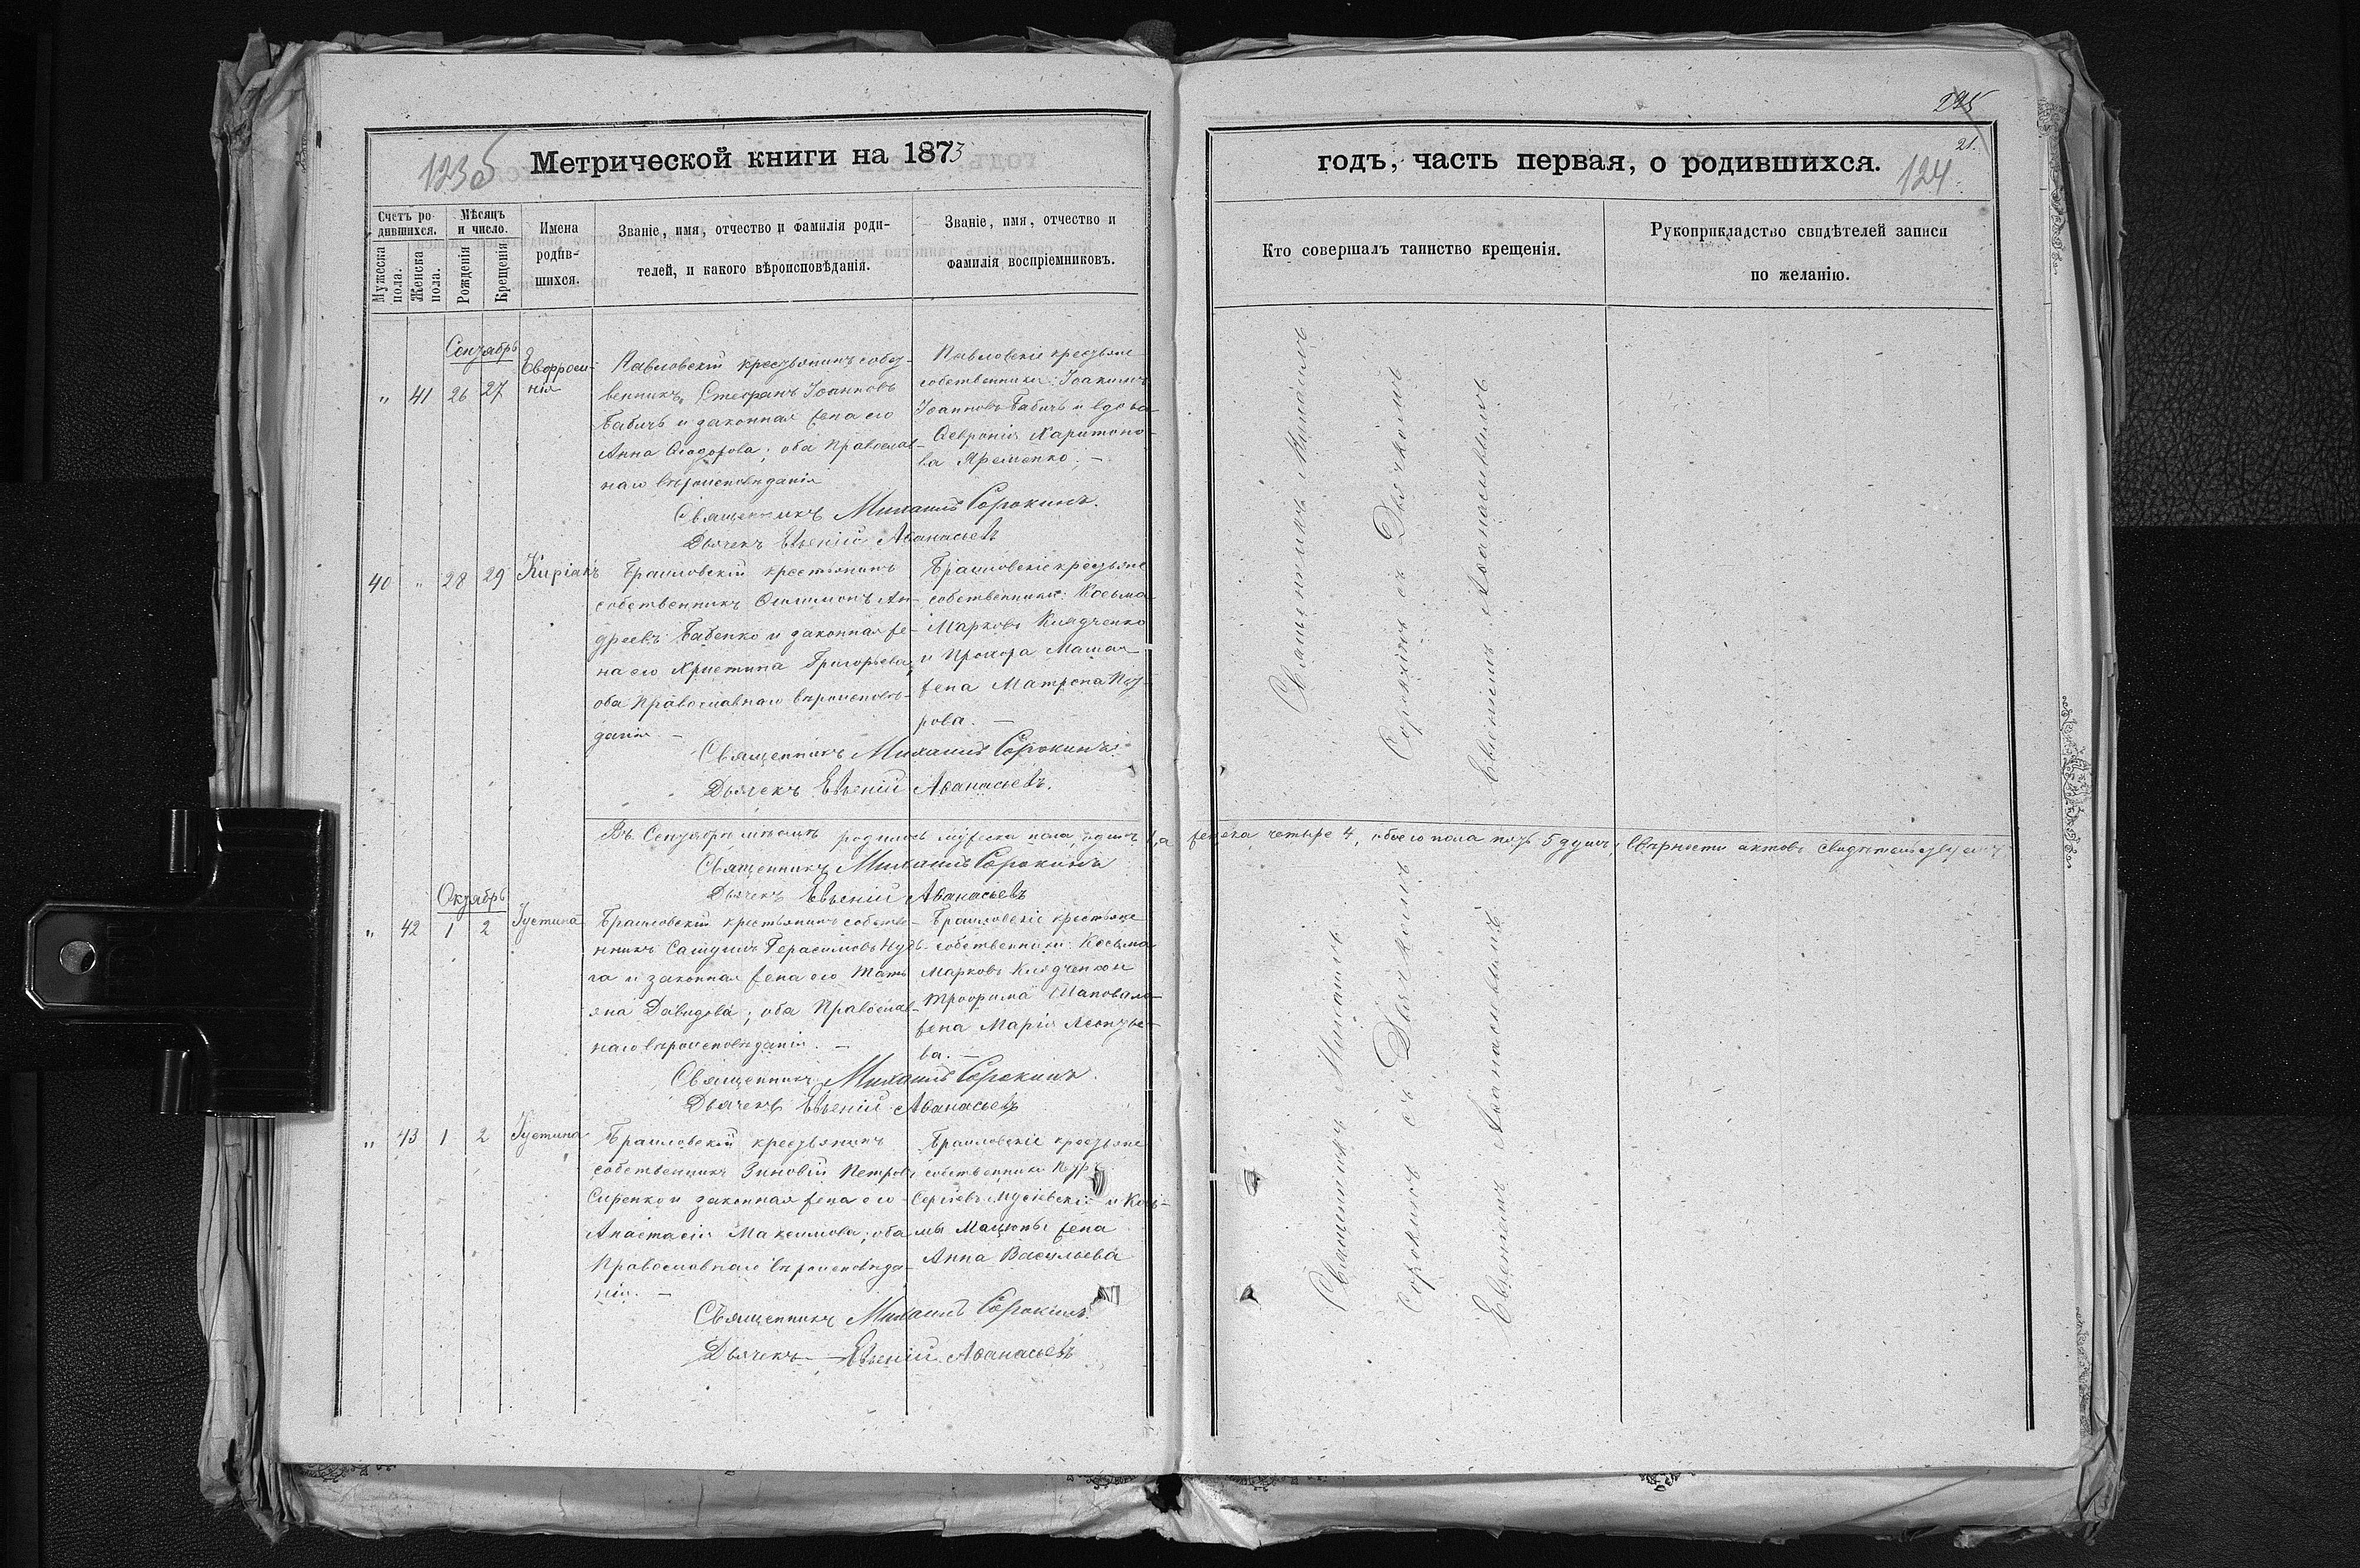 123б
Метрической книги на 1873
Счетъ ро-
дившихся.
Мужеска пола.
Женска пола.
Мѣсяцъ
и число.
Рожденія
Крещенія
Имена
родив-
шихся.
Званіе, имя, отчество и фамилія роди-
телей, и какого вѣроисповѣданія.
Званіе, имя, отчество и
фамилія воспріемниковъ.
Сентябрь
„ 41 26 27
Евфроси-
нія
Павловскій крестьянинъ собст-
венникъ Стефанъ Іоанновъ
Бабичъ и законная жена его
Анна Ѳеодорова; оба православ-
наго вѣроисповѣданія
Павловскіе крестьяне
собственники: Іоакимъ
Іоанновъ Бабичъ и вдова
Ѳевронія Харитоно-
ва Яременко. —
Священникъ Михаилъ Сорокинъ.
Дьячекъ Евгеній Аѳанасьевъ
40 „ 28 29 Киріакъ
Браиловскій крестьянинъ
собственникъ Филимонъ Ан-
дреевъ Бабенко и законная же-
на его Христина Григорьева;
оба православнаго вѣроисповѣ-
данія. —
Браиловскіе крестьяне
собственники: Косьма
Марковъ
и Прохора
жена Матрона Пет-
рова. —
Священникъ Михаилъ Сорокинъ.
Дьячекъ Евгеній Аѳанасьевъ.
Въ Сентябрѣ мѣсяцѣ родилось мужеска пола одинъ 1, а женска четыре 4, обоего пола пять 5 душъ; вѣрности актовъ свидѣтельствуемъ;
Священникъ Михаилъ Сорокинъ
Дьячекъ Евгеній Аѳанасьевъ
Октябрь
„ 42 1 2 Іустина
Браиловскій крестьянинъ собстве-
нникъ Герасимовъ
и законная жена его Тать-
яна Давидова; оба православ-
наго вѣроисповѣданія. —
Браиловскіе крестьяне
собственники: Косьма
Марковъ
Трофима Шаповала
жена Марія Леонтье-
ва. —
Священникъ Михаилъ Сорокинъ.
Дьячекъ Евгеній Аѳанасьевъ
„ 43 1 2 Іустина
Браиловскій крестьянинъ
собственникъ Зиновій Петровъ
Сиренко и законная жена его
Анастасія Максимова; оба
православнаго вѣроисповѣда-
нія. —
Браиловскіе крестьяне
собственники Петръ
Сергіевъ и Козь-
мы Мацюпы жена
Анна Васильева
Священникъ Михаилъ Сорокинъ.
Дьячекъ Евгеній Аѳанасьевъ
225
21.
124
годъ, часть первая, о родившихся.
Кто совершалъ таинство крещенія.
Рукоприкладство свидѣтелей записи
по желанію.
Священникъ Михаилъ
Сорокинъ съ Дьячкомъ
Евгеніемъ Аѳанасьевымъ
Священникъ Михаилъ
Сорокинъ съ Дьячкомъ
Евгеніемъ Аѳанасьевымъ